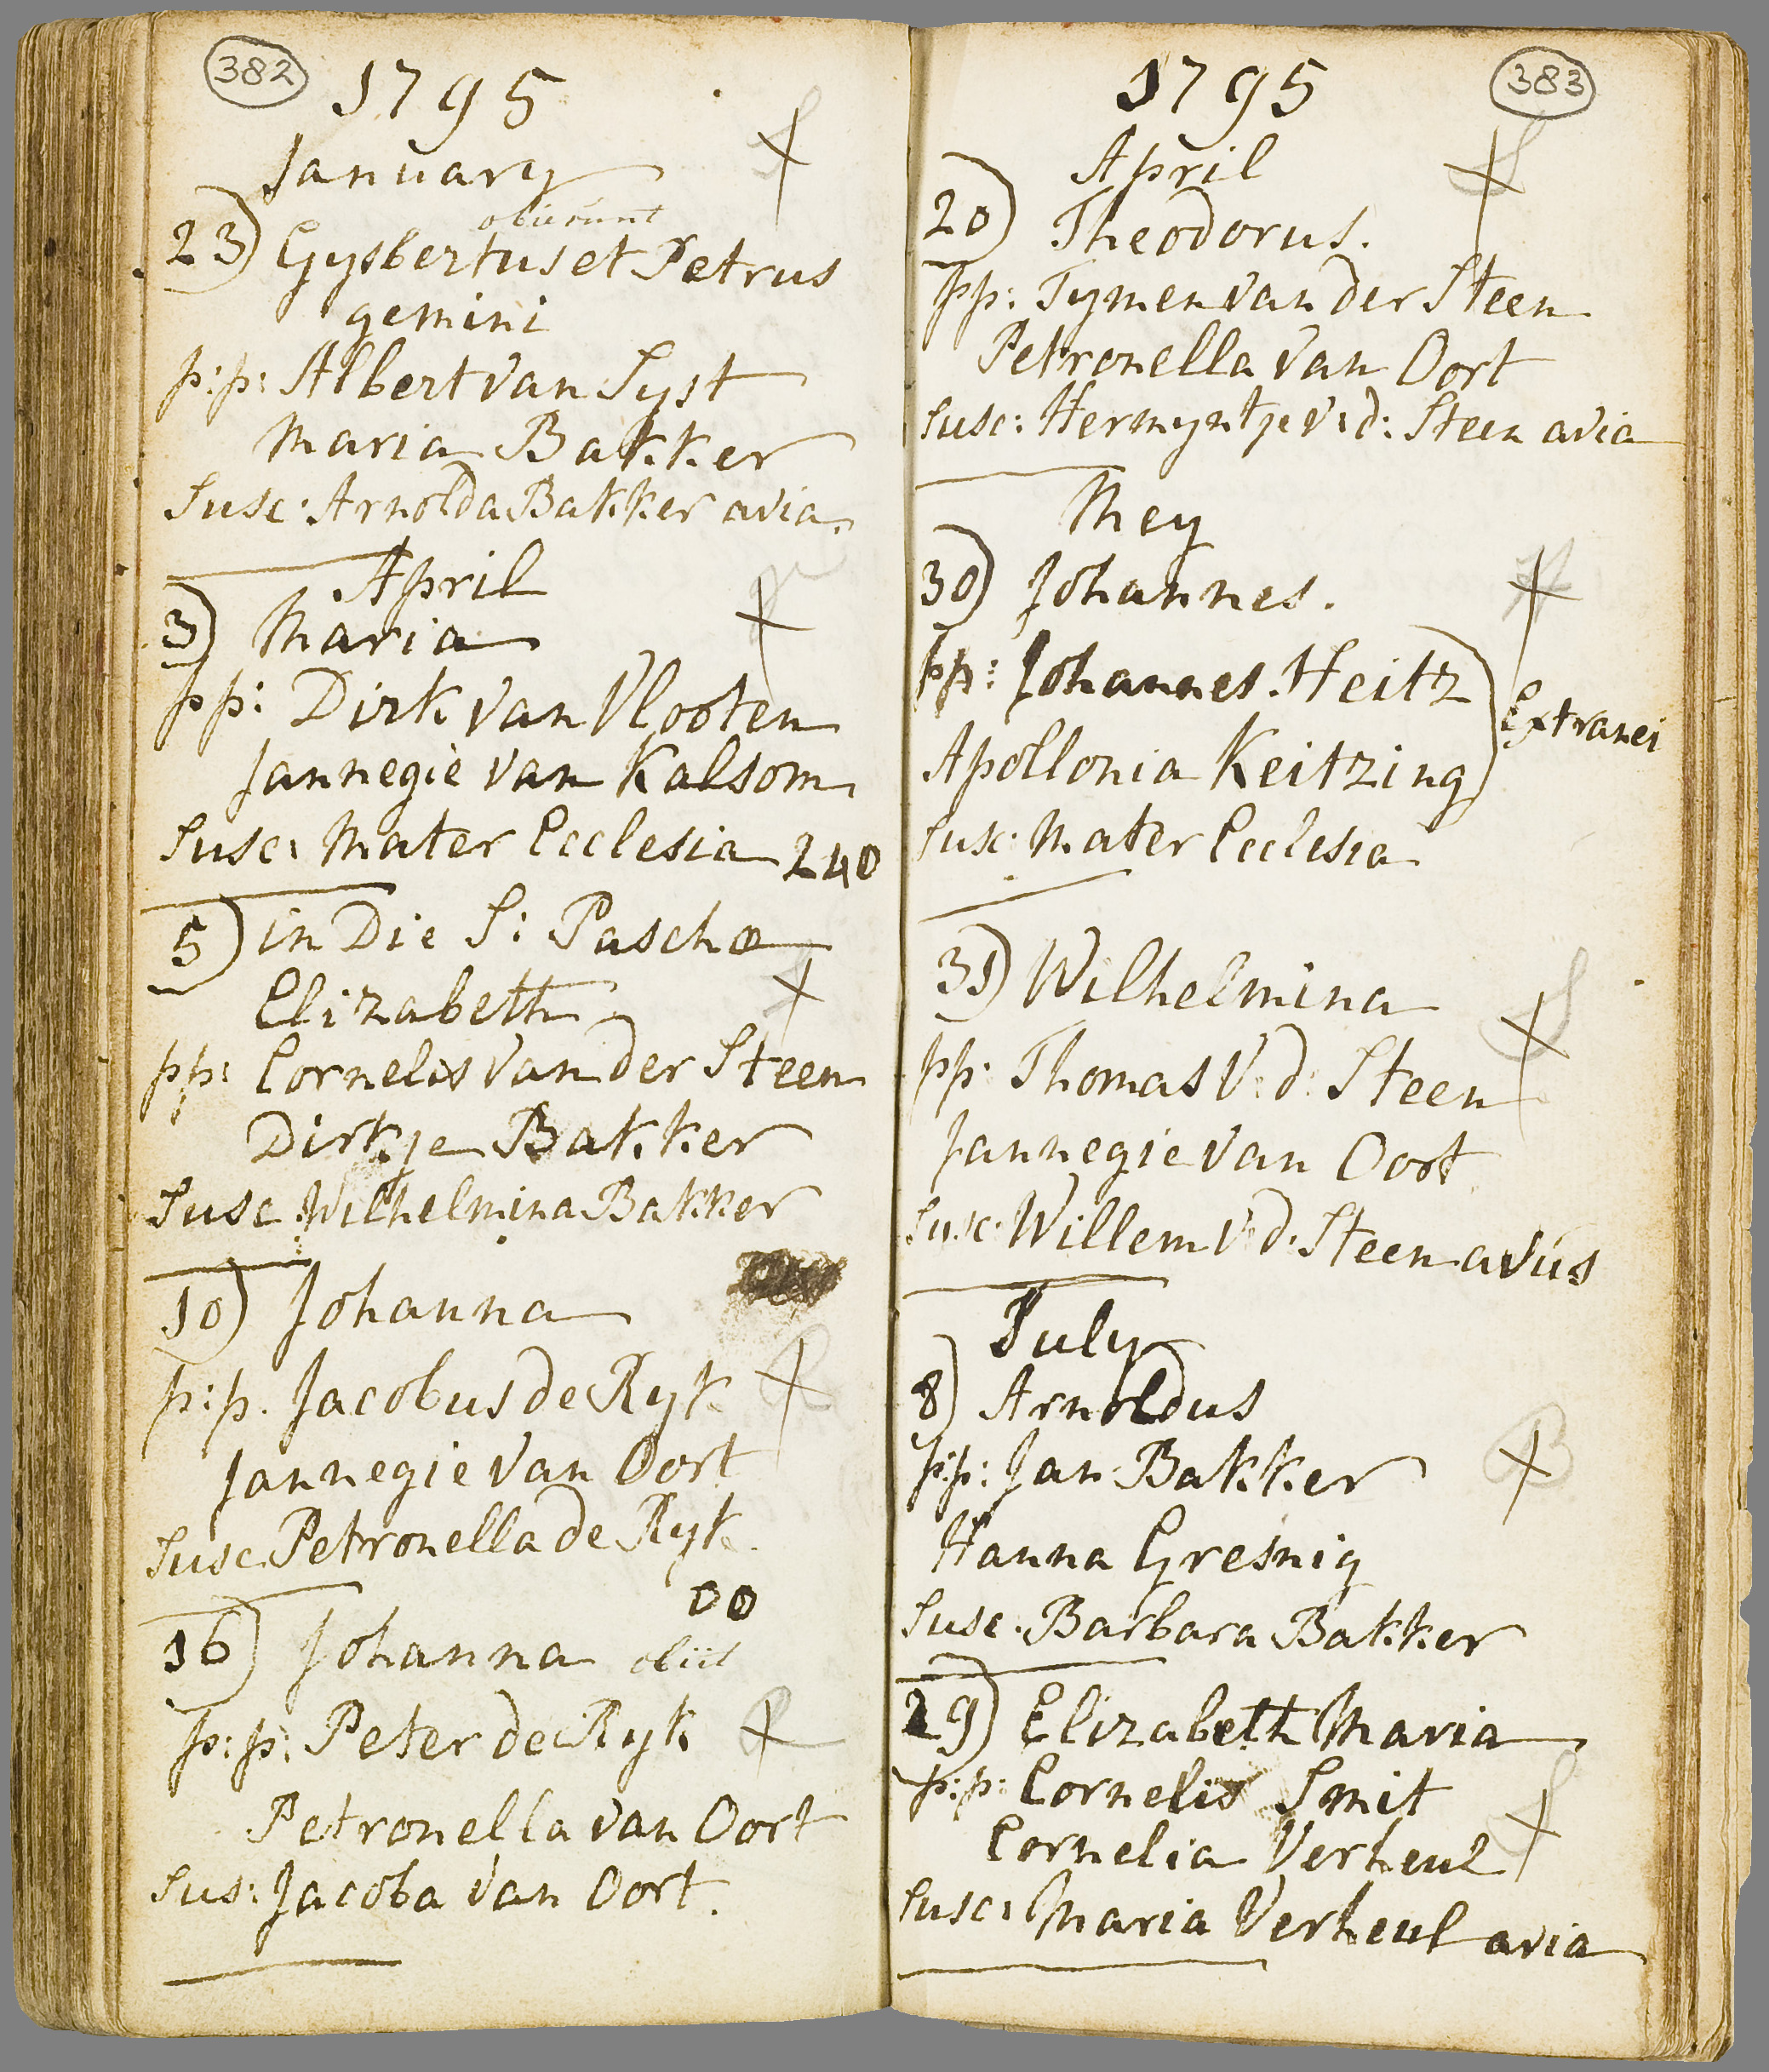 382
1795
January
obierunt
23) Gysbertus et Petrus
gemini
p:p: Albert van Syst
Maria Bakker
Susc: Arnolda Bakker avia
April
3) Maria
pp: Dirk van Vlooten
Jannegie van Kalsom
Susc: Mater Ecclesia 240
5) in Die S: Paschæ
Elizabeth
pp: Cornelis van der Steen
Dirkje Bakker
Susc Wilhelmina Bakker
10) Johanna
p:p. Jacobus de Ryk
Jannegie van Oort
Susc Petronella de Ryk.
00
16) Johanna obiit
p:p: Peter de Ryk
Petronella van Oort
Sus: Jacoba van Oort.
383
1795
April
20) Theodorus.
pp: Tymen van der Steen
Petronella van Oort
Susc: Hermyntje v:d: Steen avia
Mey
30) Johannes.
pp: Johannes Heitz
Extranei
Apollonia Keitzing
Susc: Mater Ecclesia
31) Wilhelmina
pp: Thomas V:d: Steen
Jannegie van Oort
Susc: Willem V:d: Steen avus
July
8) Arnoldus
p:p: Jan Bakker
Hanna Gresnig
Susc: Barbara Bakker
29) Elizabeth Maria
p:p: Cornelis Smit
Cornelia Verheul
Susc: Maria Verheul avia